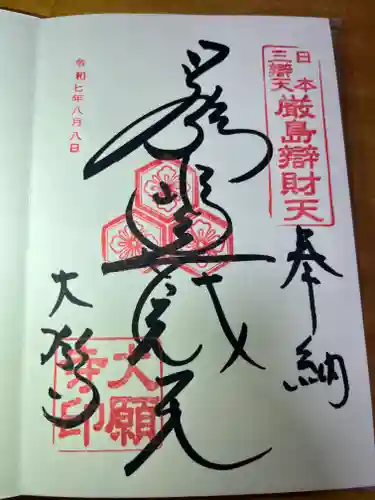 日本
三辯天
厳島辯財天
奉納
厳島弁戝天
山
大願寺
令和七年八月八日
大願
寺印